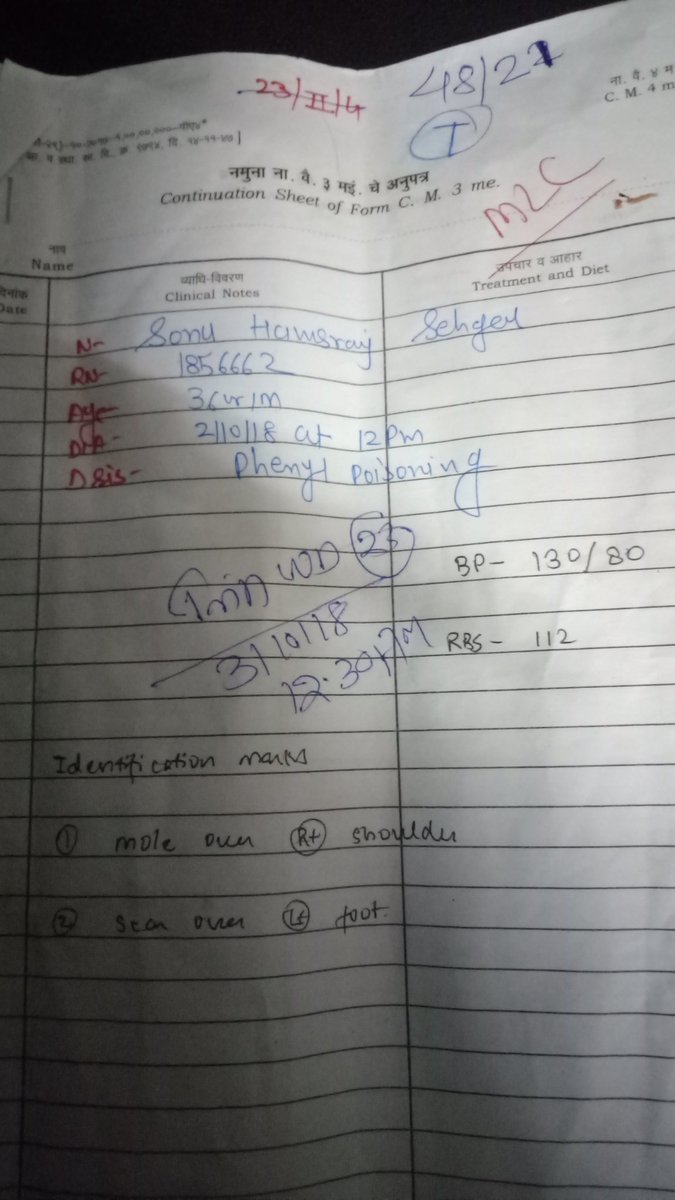 23/II/4
48/22
I
ना. वै. ४ म
C. M. 4 m
नमुना ना. वै. ३ मइं. चे अनुपत्र
Continuation Sheet of Form C. M. 3 me.
MLC
नाव
Name
दिनांक
Date
व्याधि-विवरण
Clinical Notes
उपचार व आहार
Treatment and Diet
N- Sonu Hamsraj Sehgel
RN- 1856662
Age- 36yr/M
DOA- 2/10/18 at 12 Pm
Dsis- Phenyl Poisoning
WD 23
3/10/18
12.30PM
BP- 130/80
RBS- 112
Identification marks
① mole over Rt shoulder
② scar over Lt foot.